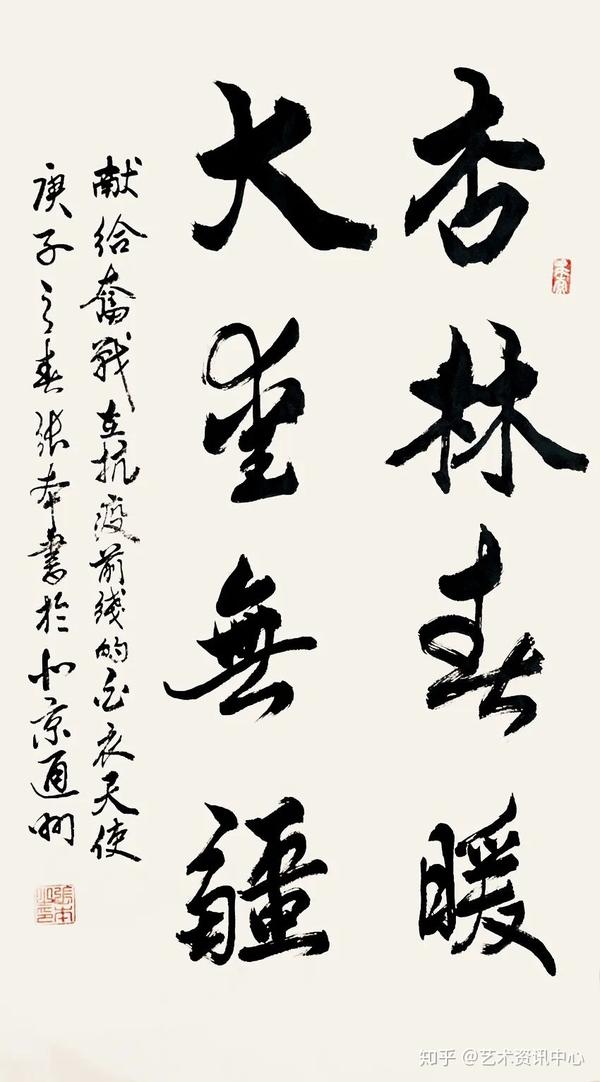 杏林春暖
大愛無疆
献给奮戰在抗疫前线的白衣天使
庚子之春张本書於北京通州
知乎 @艺术资讯中心